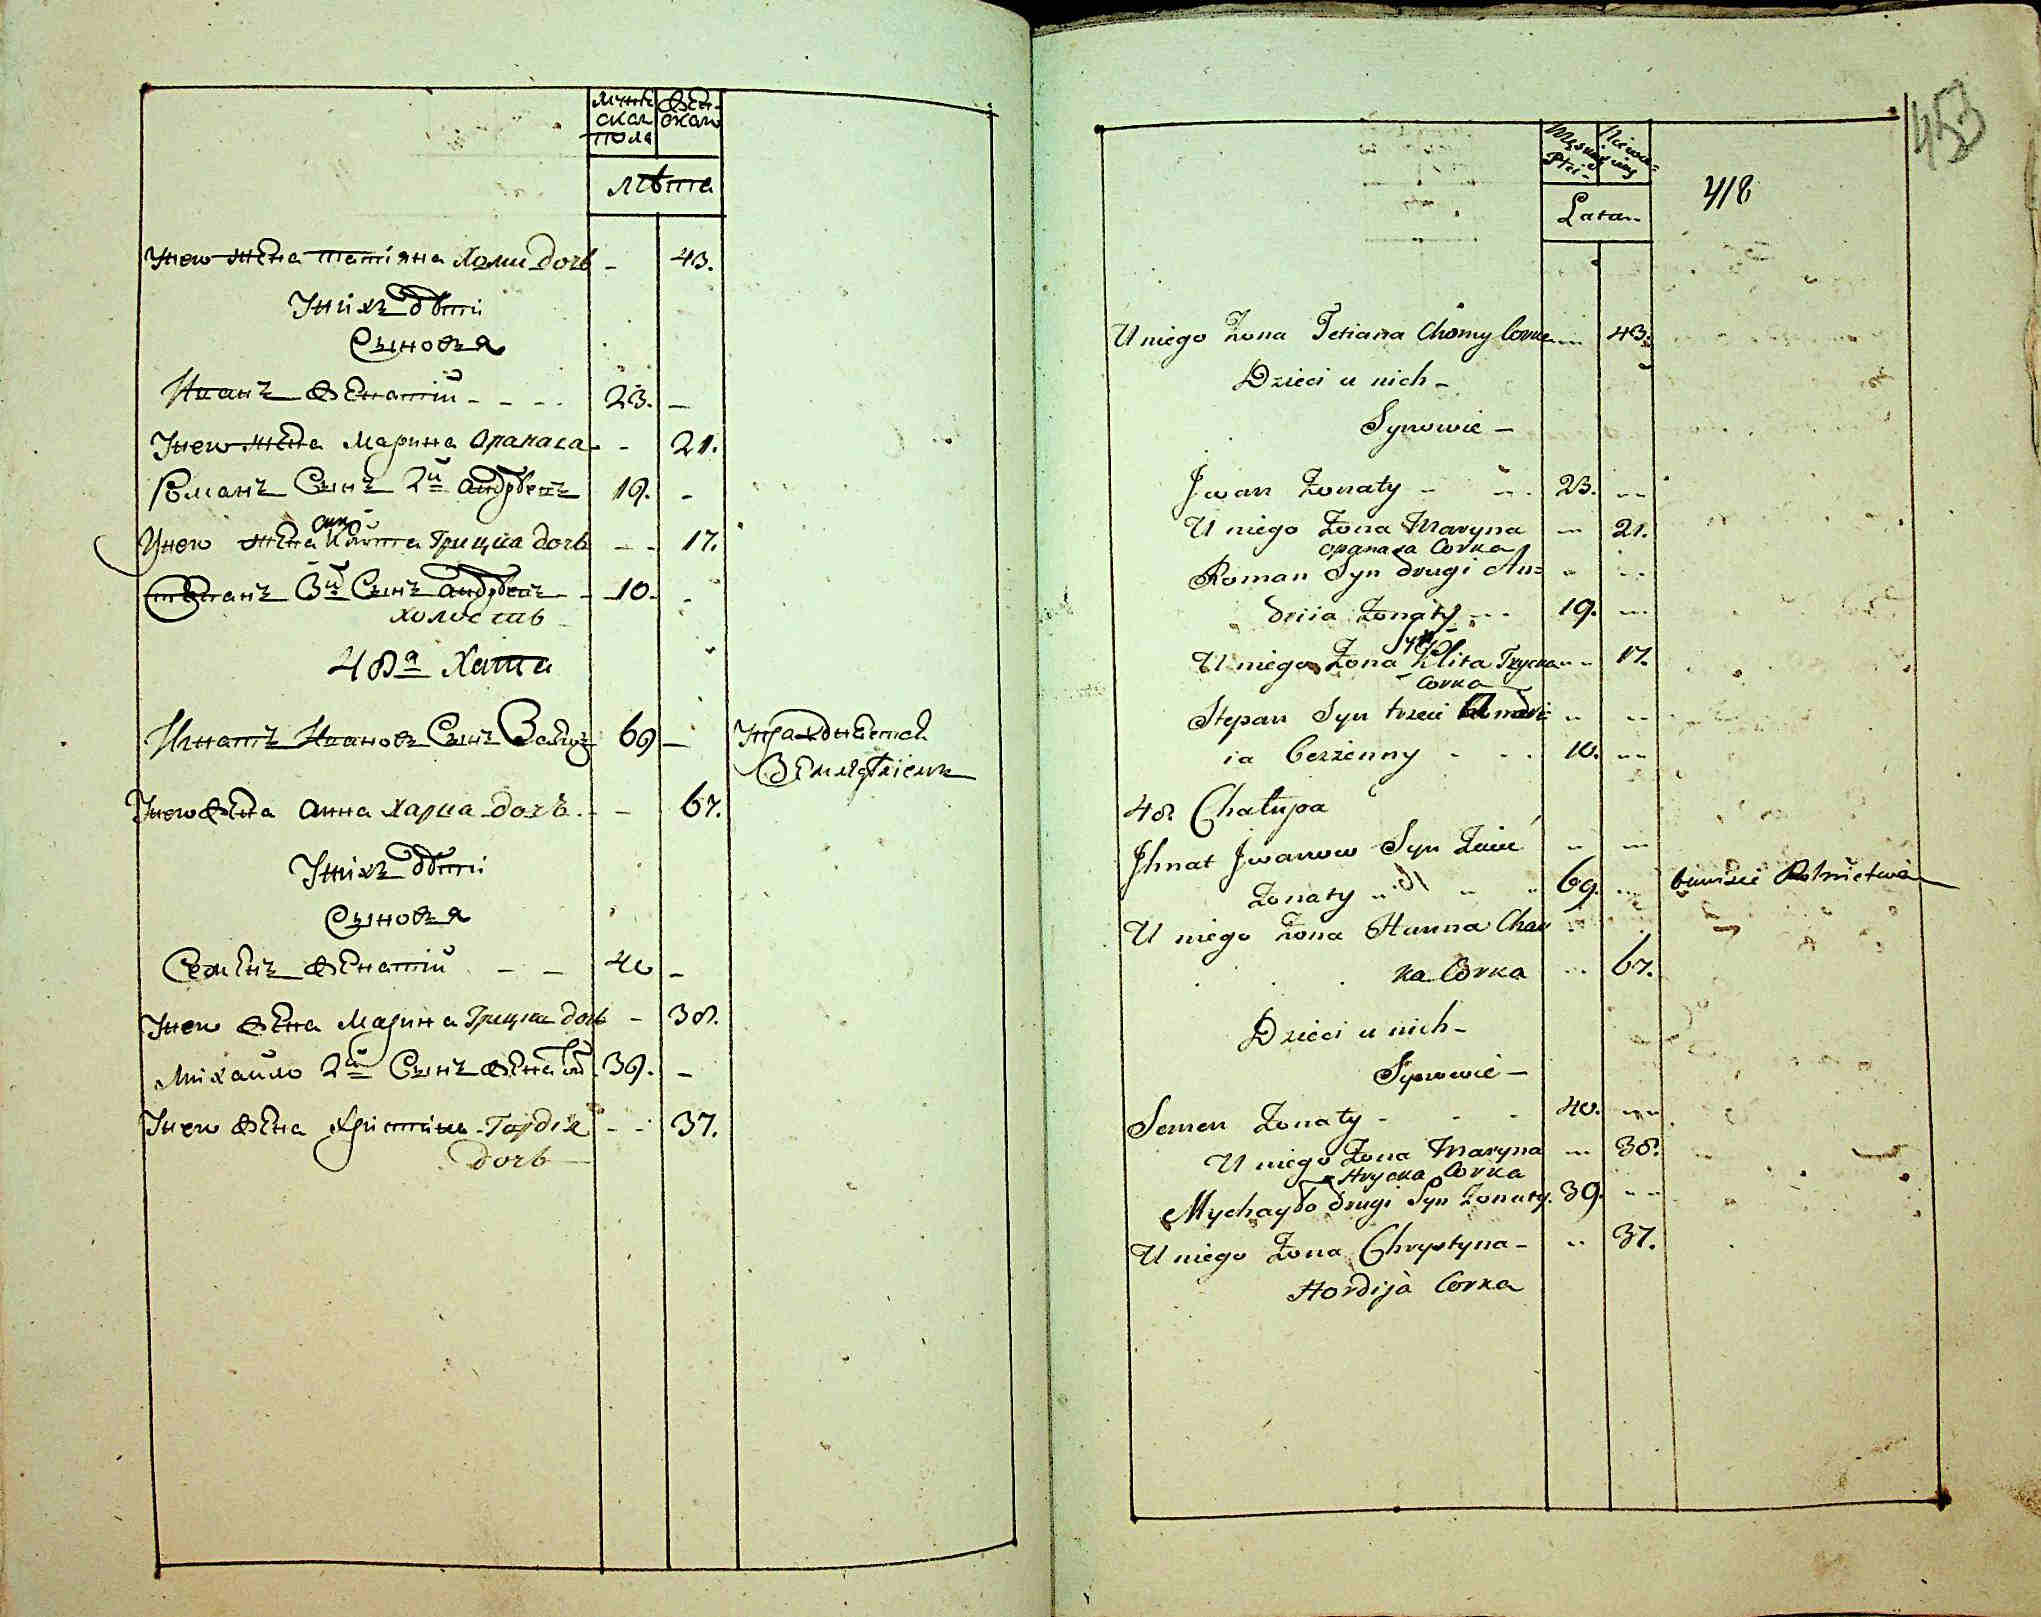 мужеска пола
женскаго
лѣта
У него жена татіяна Хоми дочь - 43.
У нихъ дѣти
Сыновья
Иванъ женатій - - - 23. -
У него жена Марина Опанаса - 21.
Романъ Сынъ 2й андрѣевъ 19. -
У него жена Улита Грицка дочь - - 17.
Степанъ 3й Сынъ андрѣевъ - 10. -
холостъ
48я Хата
Игнатъ Ивановъ Сынъ 69 - Упражняется
Земледѣліемъ
У него жена анна Харка дочь - - 67.
У нихъ дѣти
Сыновья
Семенъ женатій - - 40 -
У него жена Марина Грицка дочь - 38.
Михайло 2й Сынъ женатій 39. -
У него жена Христина Гордія - - 37.
дочь
453
418
Męskiey Płci
Niewieściey
Lata
U niego Żona Tetiana Chomy Corka 43.
Dzieci u nich -
Synowie -
Jwan Żonaty - 23. -
U niego Żona Maryna - 21.
opanasa Corka
Roman Syn drugi An=
driia Żonaty - - 19. -
U niego Żona Ulita Trycka - 17.
Corka
Stepan Syn trzeci Andri
ia bezżenny - - 10. -
48 Chałupa
Jhnat Jwanow Syn
Żonaty - - 69. - bawisie Rolnictwem
U niego Żona Hanna Char
ka Corka - 67.
Dzieci u nich -
Synowie -
Semen Żonaty - - - 40. -
U niego Żona Maryna - 38.
Hrycka Corka
Mychayło drugi Syn Żonaty. 39. - -
U niego Żona Chrystyna - - 37.
Hordija Corka